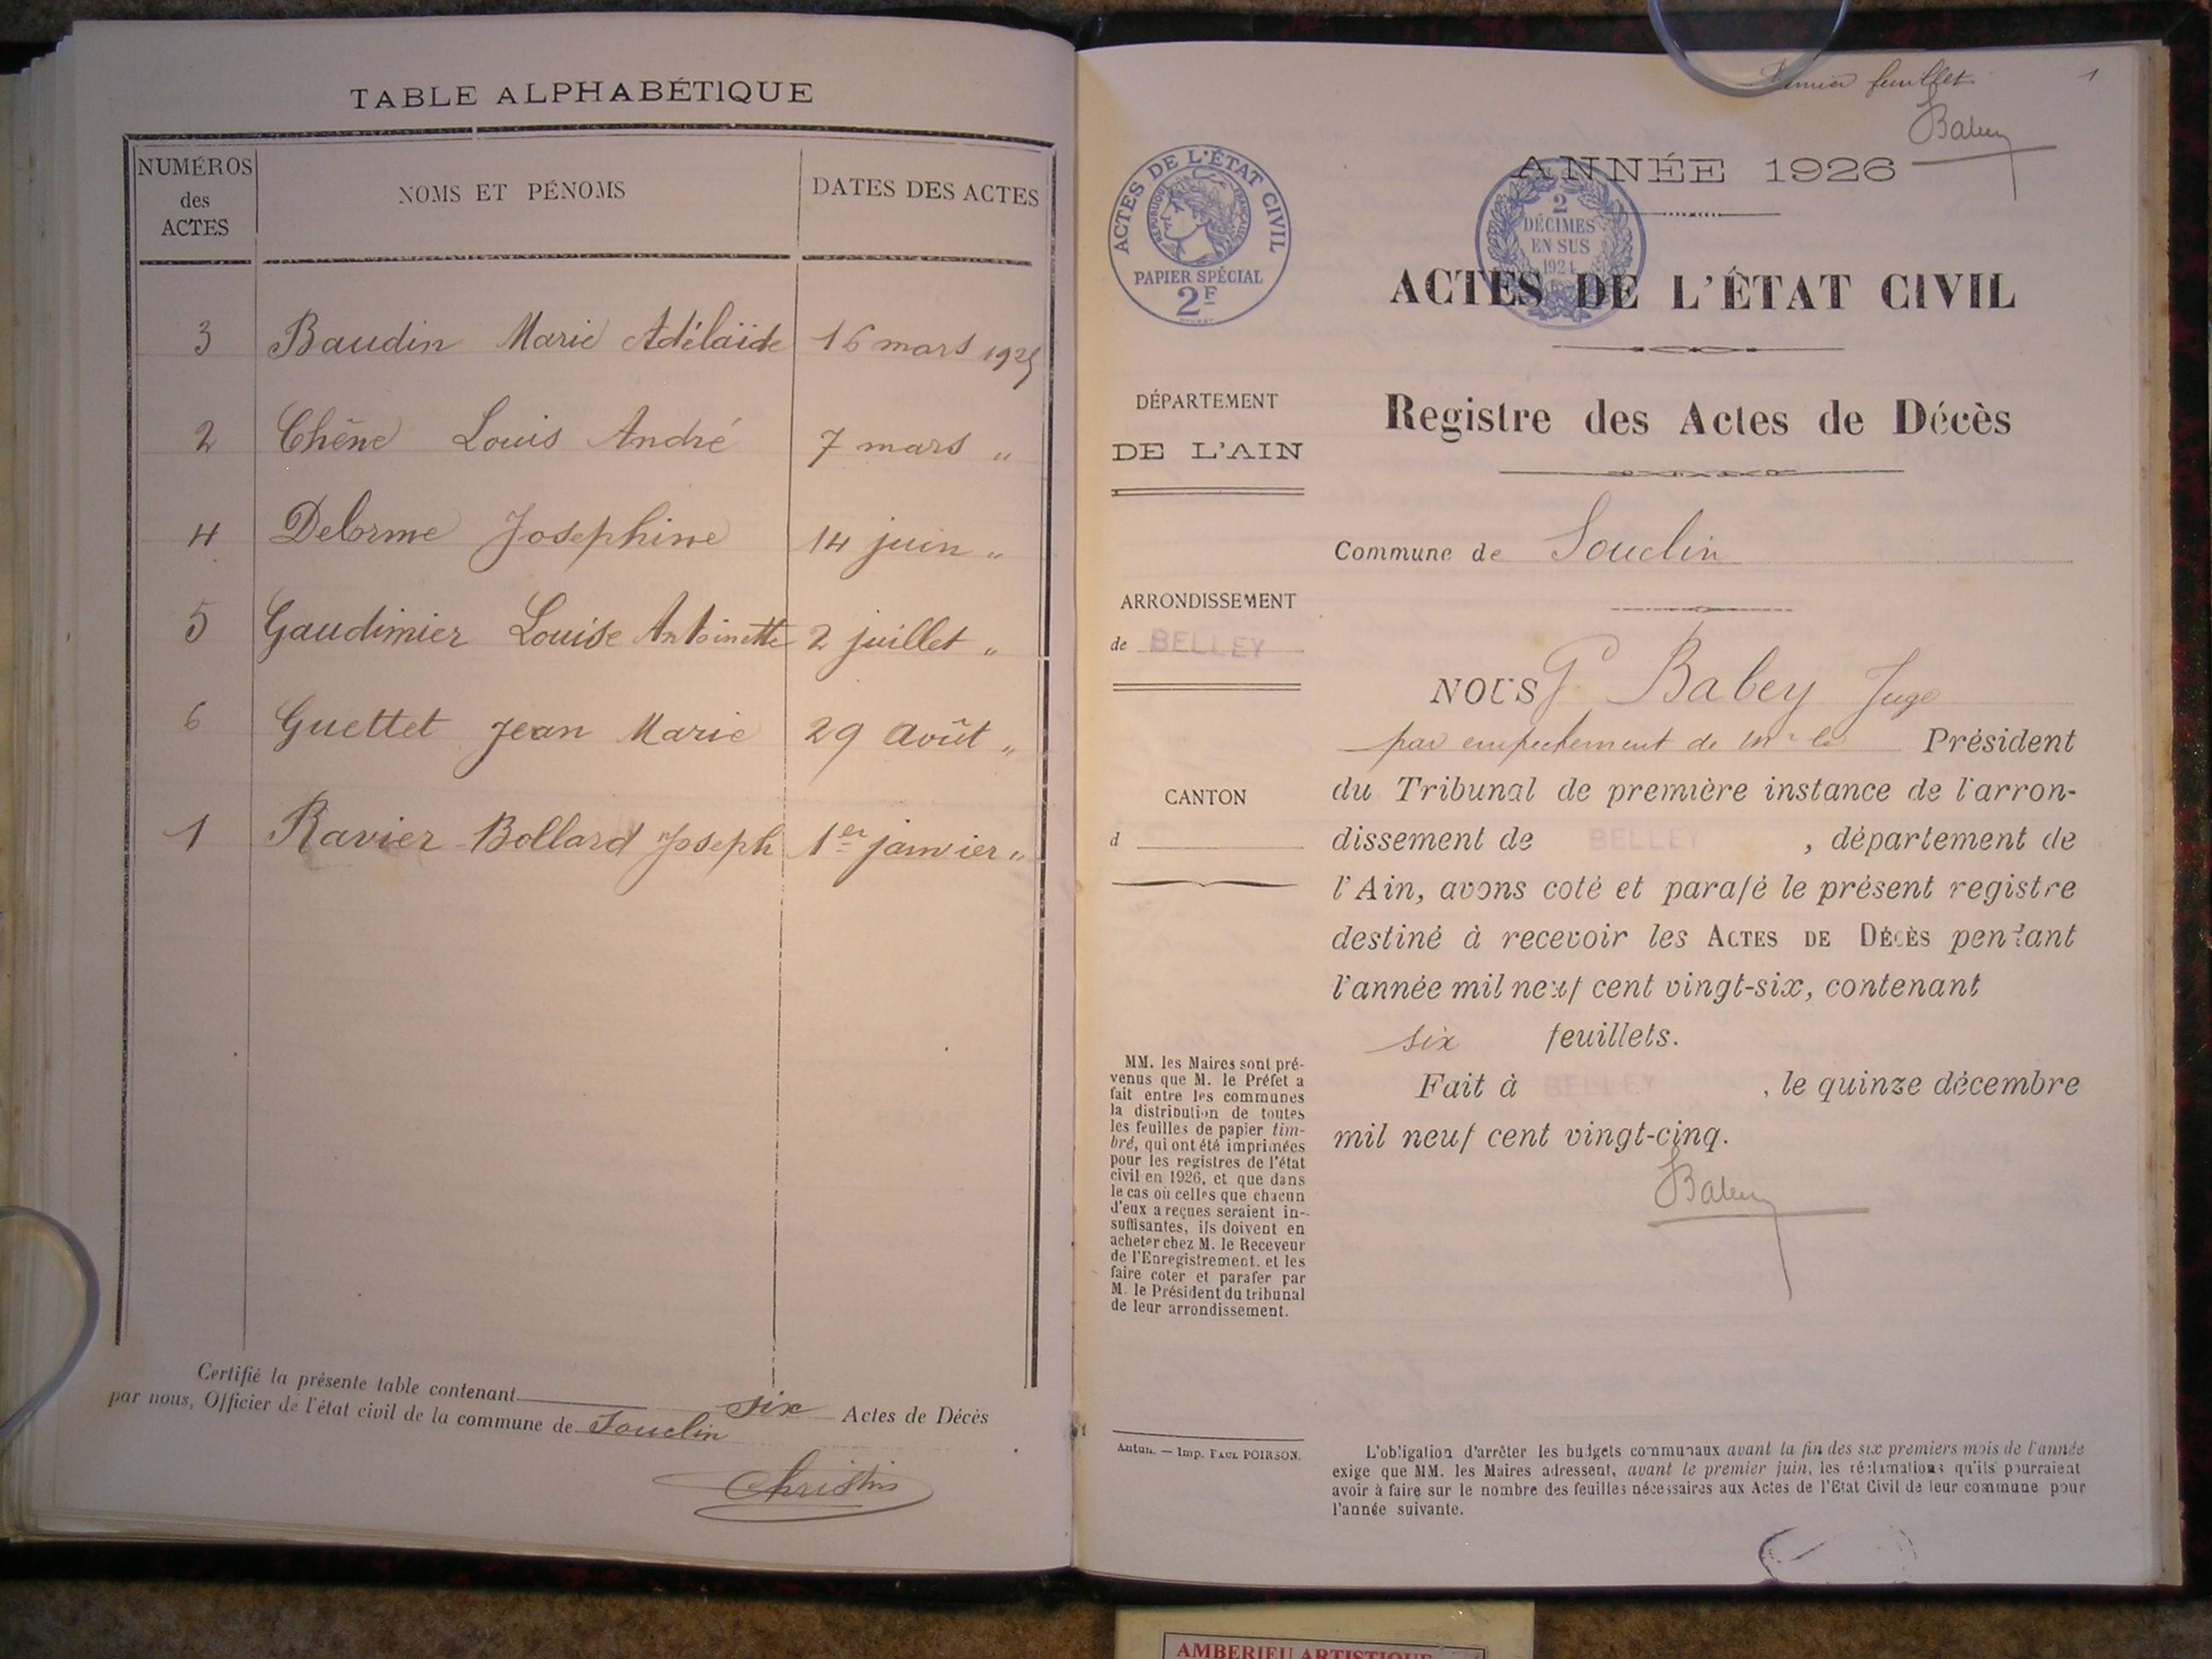 TABLE ALPHABÉTIQUE
NUMÉROS des ACTES
NOMS ET PÉNOMS
DATES DES ACTES
3 Baudin Marie Adélaïde 16 mars 1925
2 Chêne Louis André 7 mars "
4 Delorme Josephine 14 juin "
5 Gaudimier Louise Antoinette 2 juillet "
6 Guettet Jean Marie 29 Août "
1 Ravier-Bollard Joseph 1er janvier "
Certifié la présente table contenant six Actes de Décès
par nous, Officier de l'état civil de la commune de Souclin
Christin
Premier feuillet
1
Babey
ACTES DE L'ÉTAT CIVIL
RÉPUBLIQUE FRANÇAISE
PAPIER SPÉCIAL
2F
ANNÉE 1926
2
DÉCIMES
EN SUS
1924
ACTES DE L'ÉTAT CIVIL
Registre des Actes de Décès
DÉPARTEMENT
DE L'AIN
Commune de Souclin
ARRONDISSEMENT
de BELLEY
CANTON
d
NOUS G Babey Juge
par empechement de Mr le Président
du Tribunal de première instance de l'arron-
dissement de BELLEY, département de
l'Ain, avons coté et parafé le présent registre
destiné à recevoir les ACTES DE DÉCÈS pendant
l'année mil neuf cent vingt-six, contenant
six feuillets.
Fait à BELLEY, le quinze décembre
mil neuf cent vingt-cinq.
Babey
MM. les Maires sont pré-
venus que M. le Préfet a
fait entre les communes
la distribution de toutes
les feuilles de papier tim-
bré, qui ont été imprimées
pour les registres de l'état
civil en 1926, et que dans
le cas où celles que chacun
d'eux a reçues seraient in-
suffisantes, ils doivent en
acheter chez M. le Receveur
de l'Enregistrement. et les
faire coter et parafer par
M. le Président du tribunal
de leur arrondissement.
Autun. — Imp. PAUL POIRSON.
L'obligation d'arrêter les budgets communaux avant la fin des six premiers mois de l'année
exige que MM. les Maires adressent, avant le premier juin, les réclamations qu'ils pourraient
avoir à faire sur le nombre des feuilles nécessaires aux Actes de l'Etat Civil de leur commune pour
l'année suivante.
AMBERIEU ARTISTIQUE